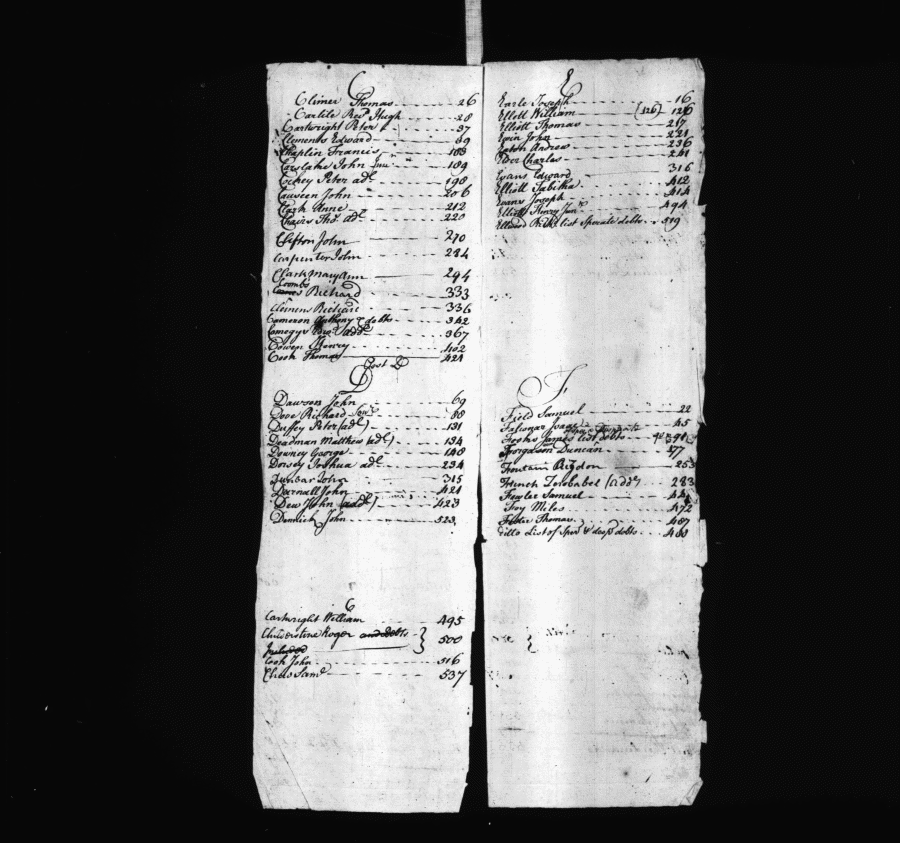 C
Climer Thomas 26
Carlile Revd. Hugh 28
Cartwright Peter 37
Clements Edward 39
Chaplin Francis 103
Corslake John Junr. 189
Cichey Peter adl. 198
Causeen John 206
Clark Anne 212
Chairs Tho. adl. 220
Clifton John 270
Carpenter John 284
Clark Mary Ann 294
Coombs
Richard 333
Clemens Richard 336
Cameron Anthony & debts 342
Comegys adl. 367
Cowen Henry 402
Cook Thomas 424
D
Dawson John 69
Dove Richard Senr. 88
Duffey Peter (adl.) 131
Deadman Matthew (adl.) 134
Downey George 148
Dorsey Joshua adl. 234
Dunbar John 315
Darnall John 421
Dew John (adl.) 423
Dennick John 523
C
Cartwright William 495
Childerstine Roger and debts } 500
Included
Cook John 516
Chew Saml. 537
E
Earle Joseph 16
Ellett William (126) 126
Elliott Thomas 217
Ewin John 221
Eaton Andrew 236
Elder Charles 241
Evans Edward 316
Elliott Tabitha 412
Evans Joseph 414
Elliott Henry Junr. 494
Ellwood Richd. list Sperate debts 519
F
Field Samuel 22
Falconar Isaac 45
James list debts
Forgdson Duncan 577
Fountain Brigdon 253
French Zerobabel (adl.) 283
Fowler Samuel 44
Foy Miles 472
Fisher Thomas 487
Ditto List of Sper & desp debts 488